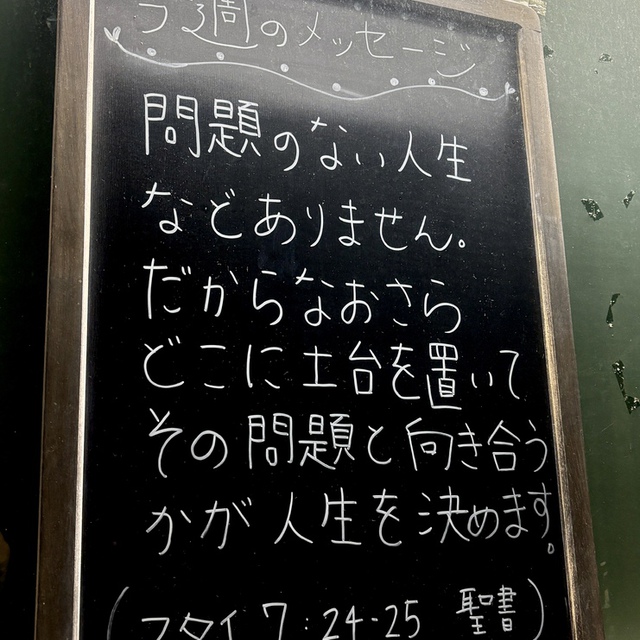 今週のメッセージ
問題のない人生
などありません。
だからなおさら
どこに土台を置いて
その問題と向き合う
かが人生を決めます。
(マタイ7:24-25 聖書)